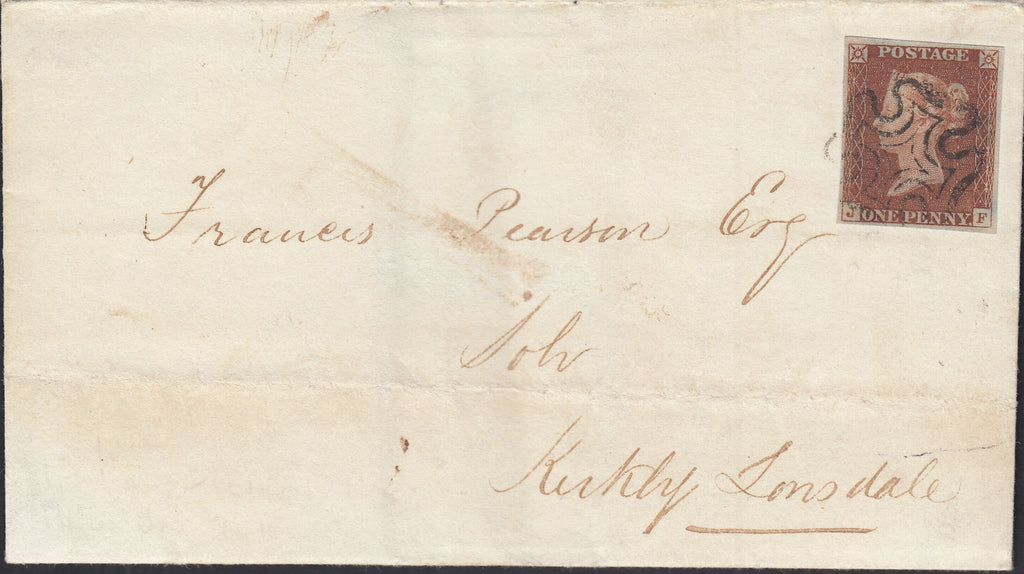 POSTAGE
J ONE PENNY. F
Francis Pearson Esq
Solr
Kirkby Lonsdale